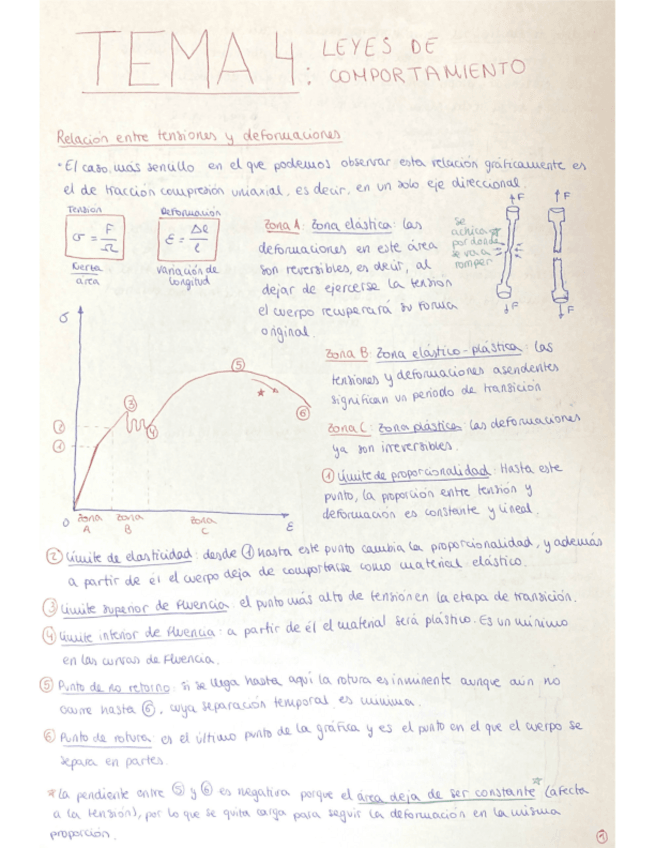 TEMA 4: LEYES DE
COMPORTAMIENTO
Relación entre tensiones y deformaciones
· El caso más sencillo en el que podemos observar esta relación gráficamente es
el de tracción compresión uniaxial, es decir, en un solo eje direccional.
Tensión
σ = F/Ω
fuerza
área
Deformación
ε = Δl/l
variación de
longitud
Zona A: Zona elástica: las
deformaciones en este área
son reversibles, es decir, al
dejar de ejercerse la tensión
el cuerpo recuperará su forma
original.
se
achica
por donde
se va a
romper
F
F
F
F
Zona B: Zona elástico-plástica: las
tensiones y deformaciones asendentes
significan un período de transición
Zona C: Zona plástica: las deformaciones
ya son irreversibles.
① Límite de proporcionalidad: Hasta este
punto, la proporción entre tensión y
deformación es constante y lineal.
σ
③
⑤
④
⑥
①
0
Zona
A
Zona
B
Zona
C
ε
② Límite de elasticidad: desde ① hasta este punto cambia la proporcionalidad, y además
a partir de él el cuerpo deja de comportarse como material elástico.
③ Límite superior de fluencia: el punto más alto de tensión en la etapa de transición.
④ Límite inferior de fluencia: a partir de él el material será plástico. Es un mínimo
en las curvas de fluencia.
⑤ Punto de no retorno: si se llega hasta aquí la rotura es inminente aunque aún no
ocurre hasta ⑥, cuya separación temporal es mínima.
⑥ Punto de rotura: es el último punto de la gráfica y es el punto en el que el cuerpo se
separa en partes.
* La pendiente entre ⑤ y ⑥ es negativa porque el área deja de ser constante (afecta
a la tensión), por lo que se quita carga para seguir la deformación en la misma
proporción.
①